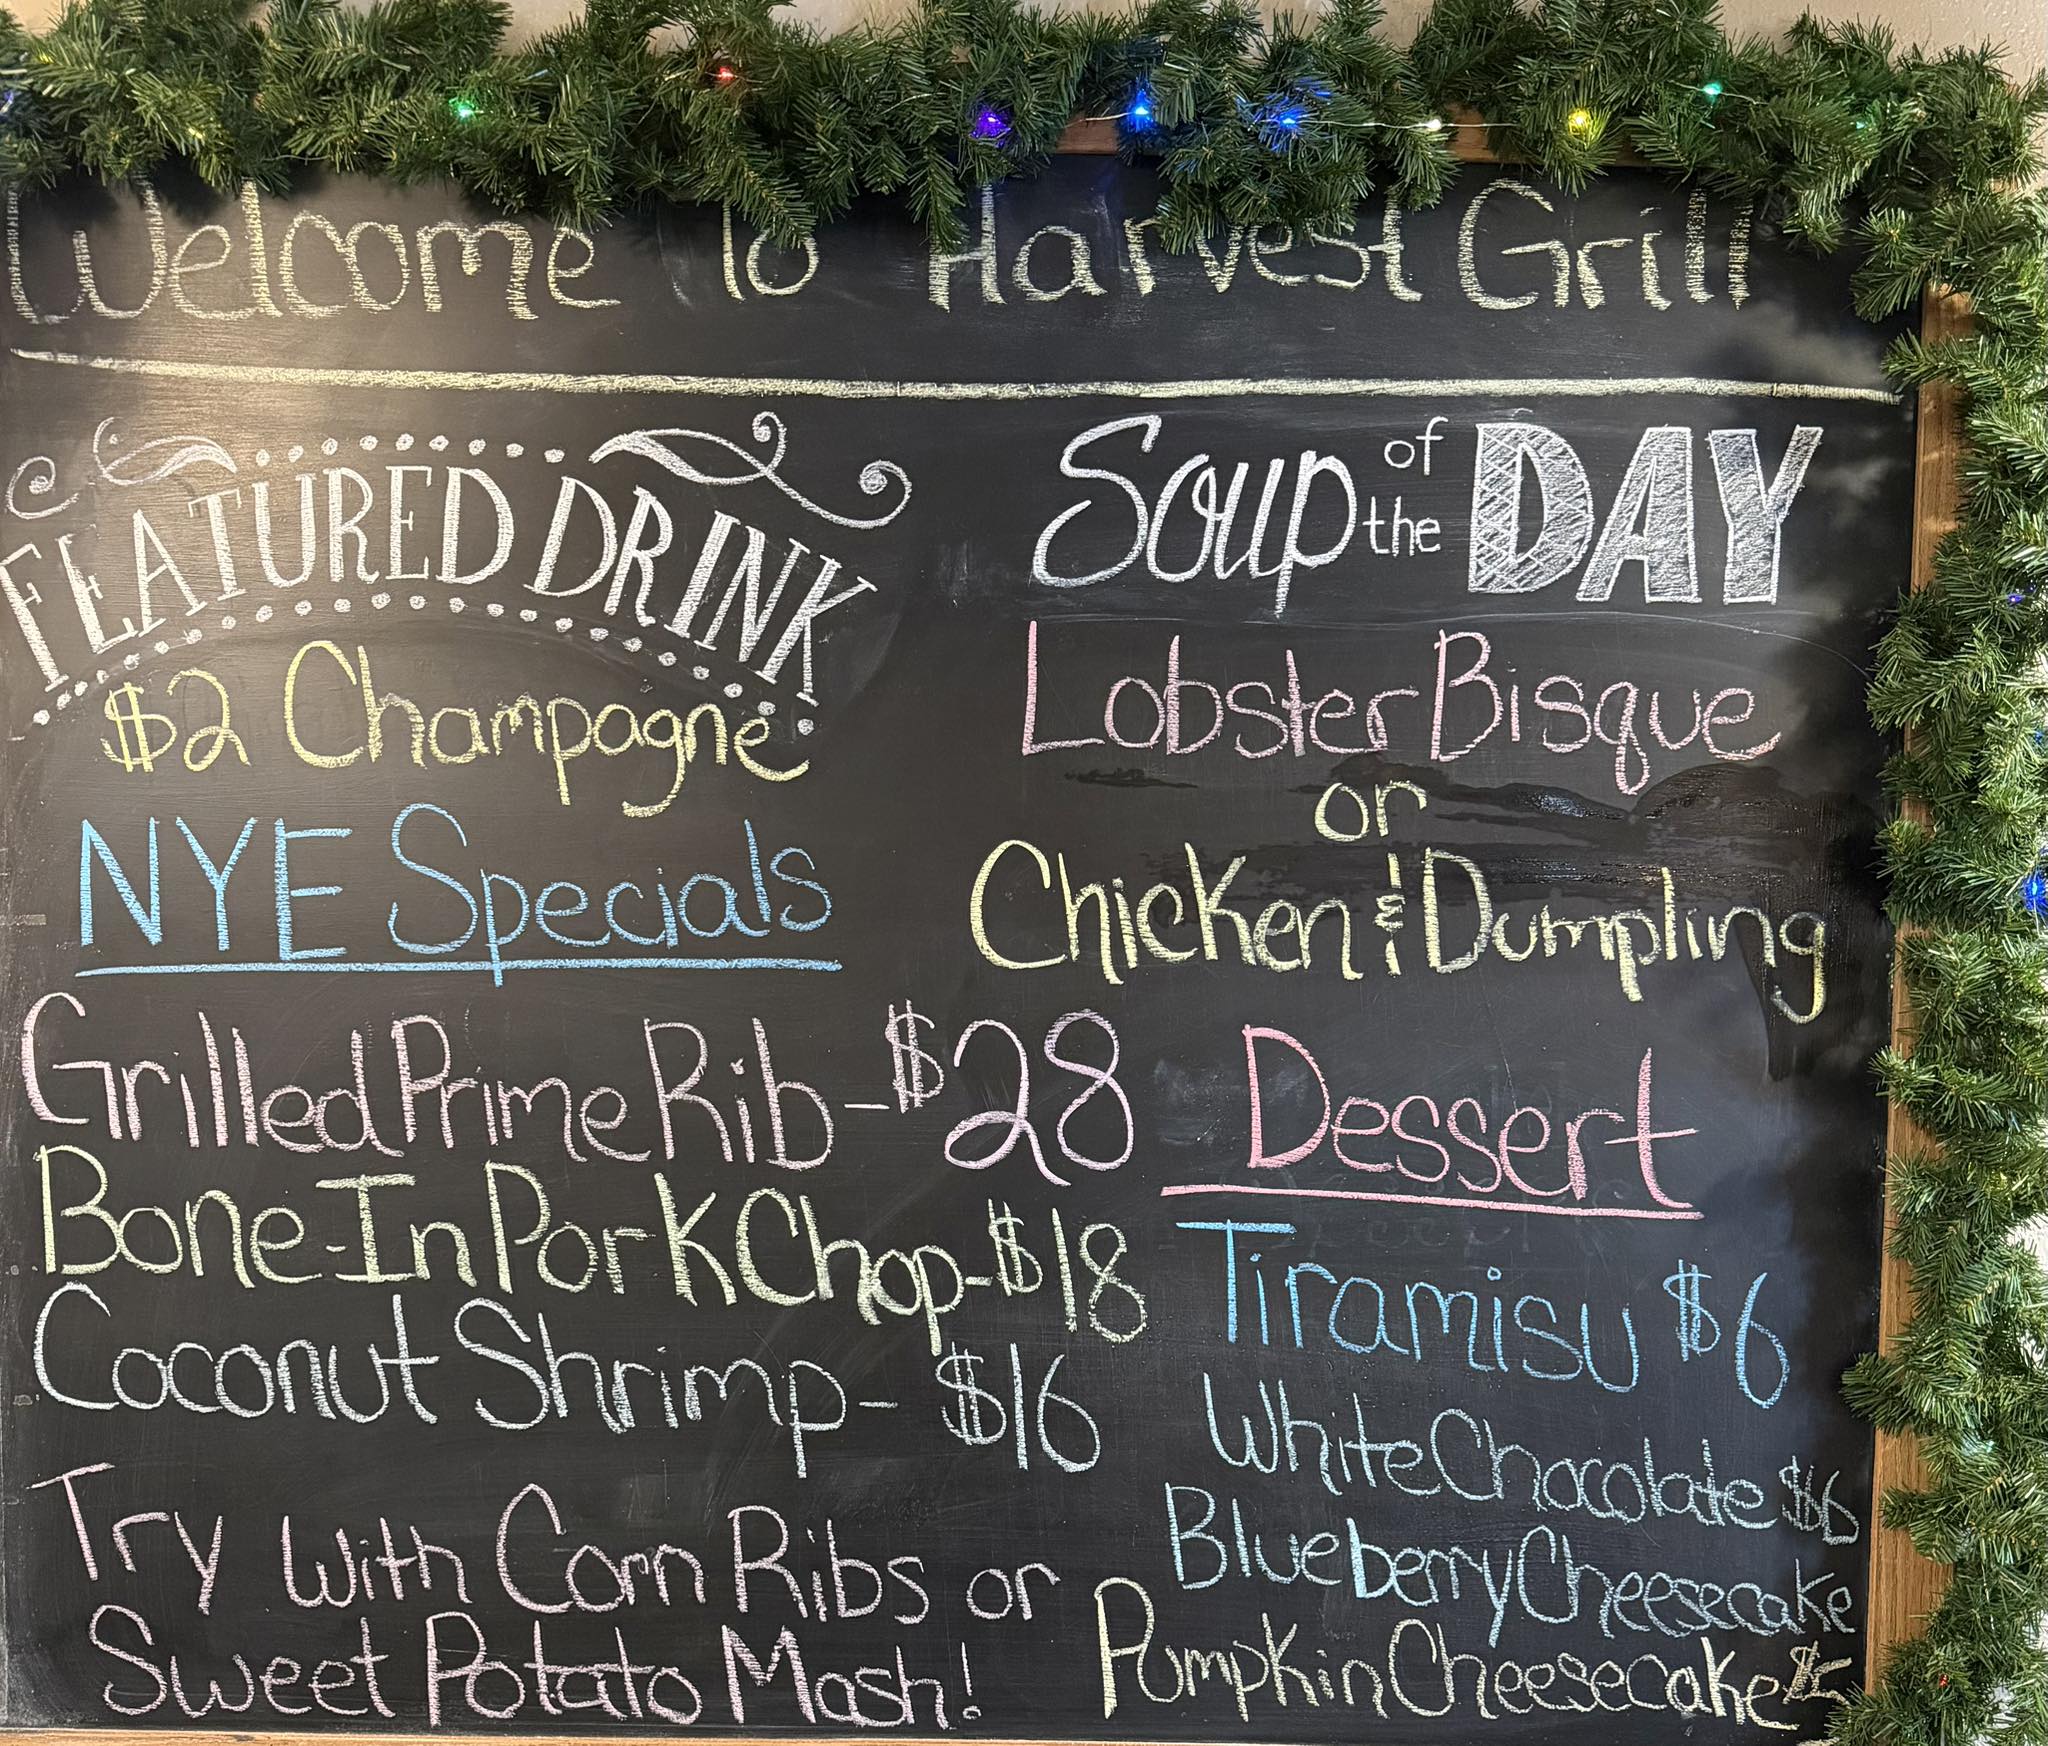 Welcome To Harvest Grill
FEATURED DRINK
$2 Champagne
NYE Specials
Grilled Prime Rib - $28
Bone-In Pork Chop - $18
Coconut Shrimp - $16
Try With Corn Ribs or
Sweet Potato Mash!
Soup of the DAY
Lobster Bisque
or
Chicken & Dumpling
Dessert
Tiramisu $6
White Chocolate $6
Blueberry Cheesecake
Pumpkin Cheesecake $5